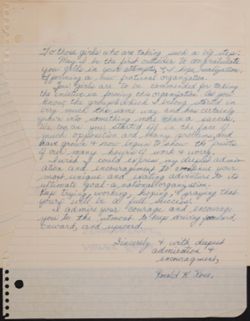 To those girls who are taking such a big step:
May I be the first outsider to congratulate
you girls in your attempts, and investigation,
of forming a new fraternal organization.
You girls are to be commended for taking
the initiative in forming this organization. As you
know the group which I belong started in
very much the same way and has certainly
into something more than a success.
We began you started off in the face of
much opposition and many problems and
have grown & now begun to show the fruits
of our many hours of work & worry.
I wish I could express my deepest admir-
ation and encouragement to your
most unique and exciting adventure to its
ultimate goal - a national organization.
Keep trying, working, hoping, & praying that
yours will be a full success.
I admire your courage and encourage
you to the utmost to keep driving forward
toward, and upward.
Sincerely & with deepest
admiration &
encouragement,
Ronald K.